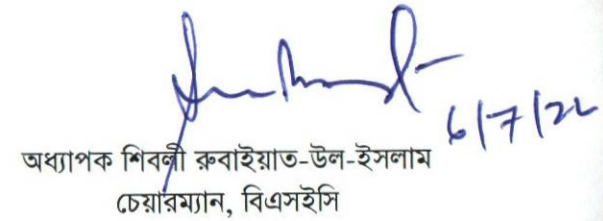 6/7/22
অধ্যাপক শিবলী রুবাইয়াত-উল-ইসলাম
চেয়ারম্যান, বিএসইসি